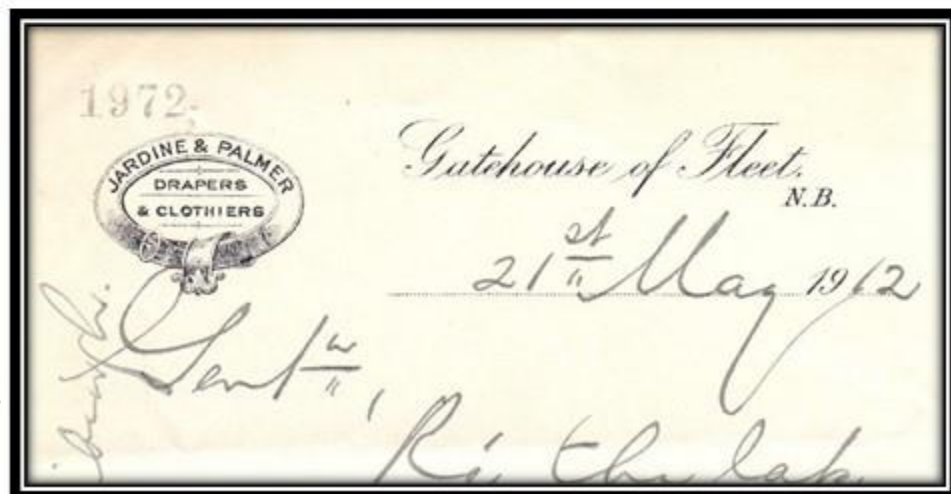 1972,
JARDINE & PALMER
DRAPERS
& CLOTHIERS
Gatehouse of Fleet.
N.B.
21st May 1912
Gentn,